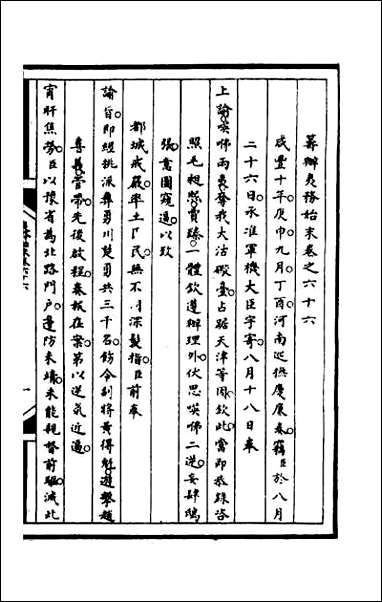 籌辦夷務始末卷之六十六
咸豐十年庚申九月丁酉河南巡撫慶廉奏竊臣於八月
二十六日承准軍機大臣字寄八月十八日奉
上諭㗆咈兩夷奪我大沽礮臺占踞天津等因欽此當即恭錄咨
照毛昶熙賈臻一體欽遵辦理外伏思㗆咈二逆妄肆鴟
張意圖窺逼以致
都城戒嚴率土臣民無不同深髮指臣前奉
諭旨即經挑派彝勇川楚勇共三千名飭令副將黃得魁遊擊趙
喜義管帶先後啟程奏報在案第以逆氛近逼
宵旰焦勞臣以豫省為北路門戶邊防未竣未能親督前驅滅此